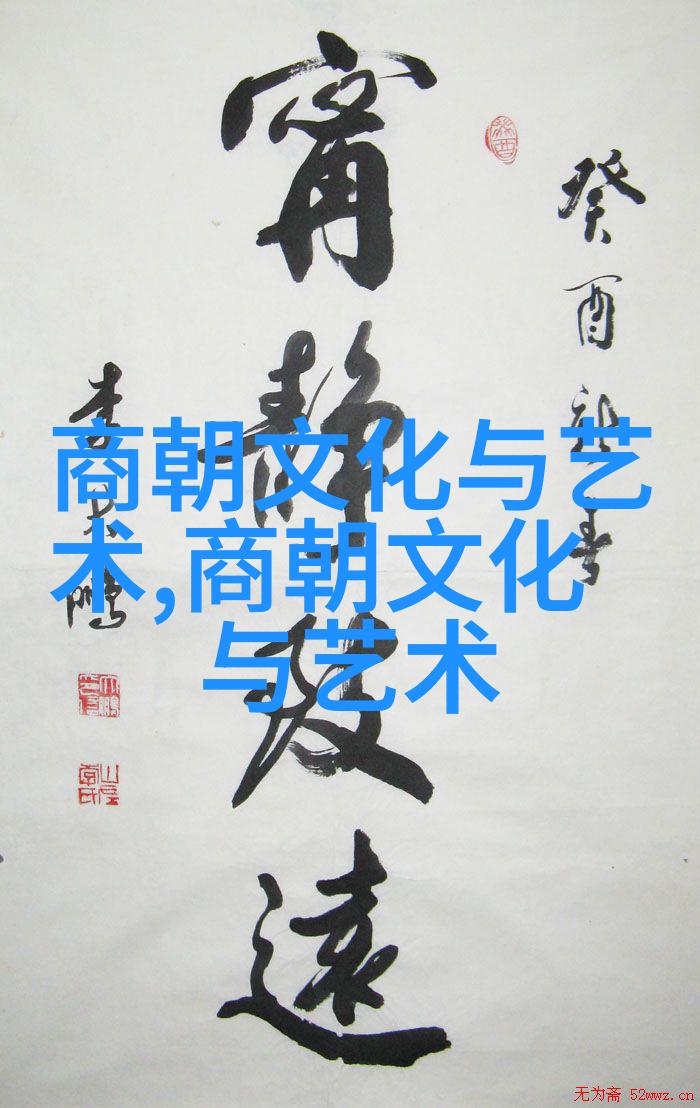 癸酉新春
甯静致远
李大鹏
商朝文化与艺
术,商朝文化
与艺术
无为斋 52wwz.cn